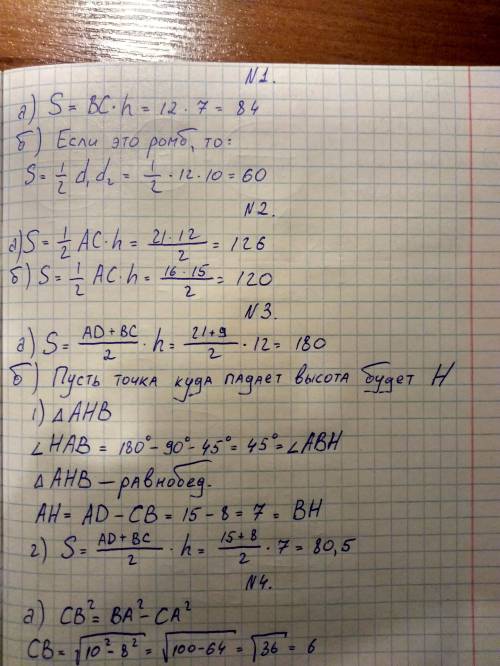 N1.
а) S = BC·h = 12·7 = 84
б) Если это ромб, то:
S = 1/2 d₁d₂ = 1/2 · 12 · 10 = 60
N2.
а) S = 1/2 AC·h = 21·12/2 = 126
б) S = 1/2 AC·h = 16·15/2 = 120
N3.
а) S = AD+BC/2 · h = 21+9/2 · 12 = 180
б) Пусть точка куда падает высота будет H
1) △AHB
∠HAB = 180° - 90° - 45° = 45° = ∠ABH
△AHB — равнобед.
AH = AD - CB = 15 - 8 = 7 = BH
2) S = AD+BC/2 · h = 15+8/2 · 7 = 80,5
N4.
а) CB² = BA² - CA²
CB = √10²-8² = √100-64 = √36 = 6